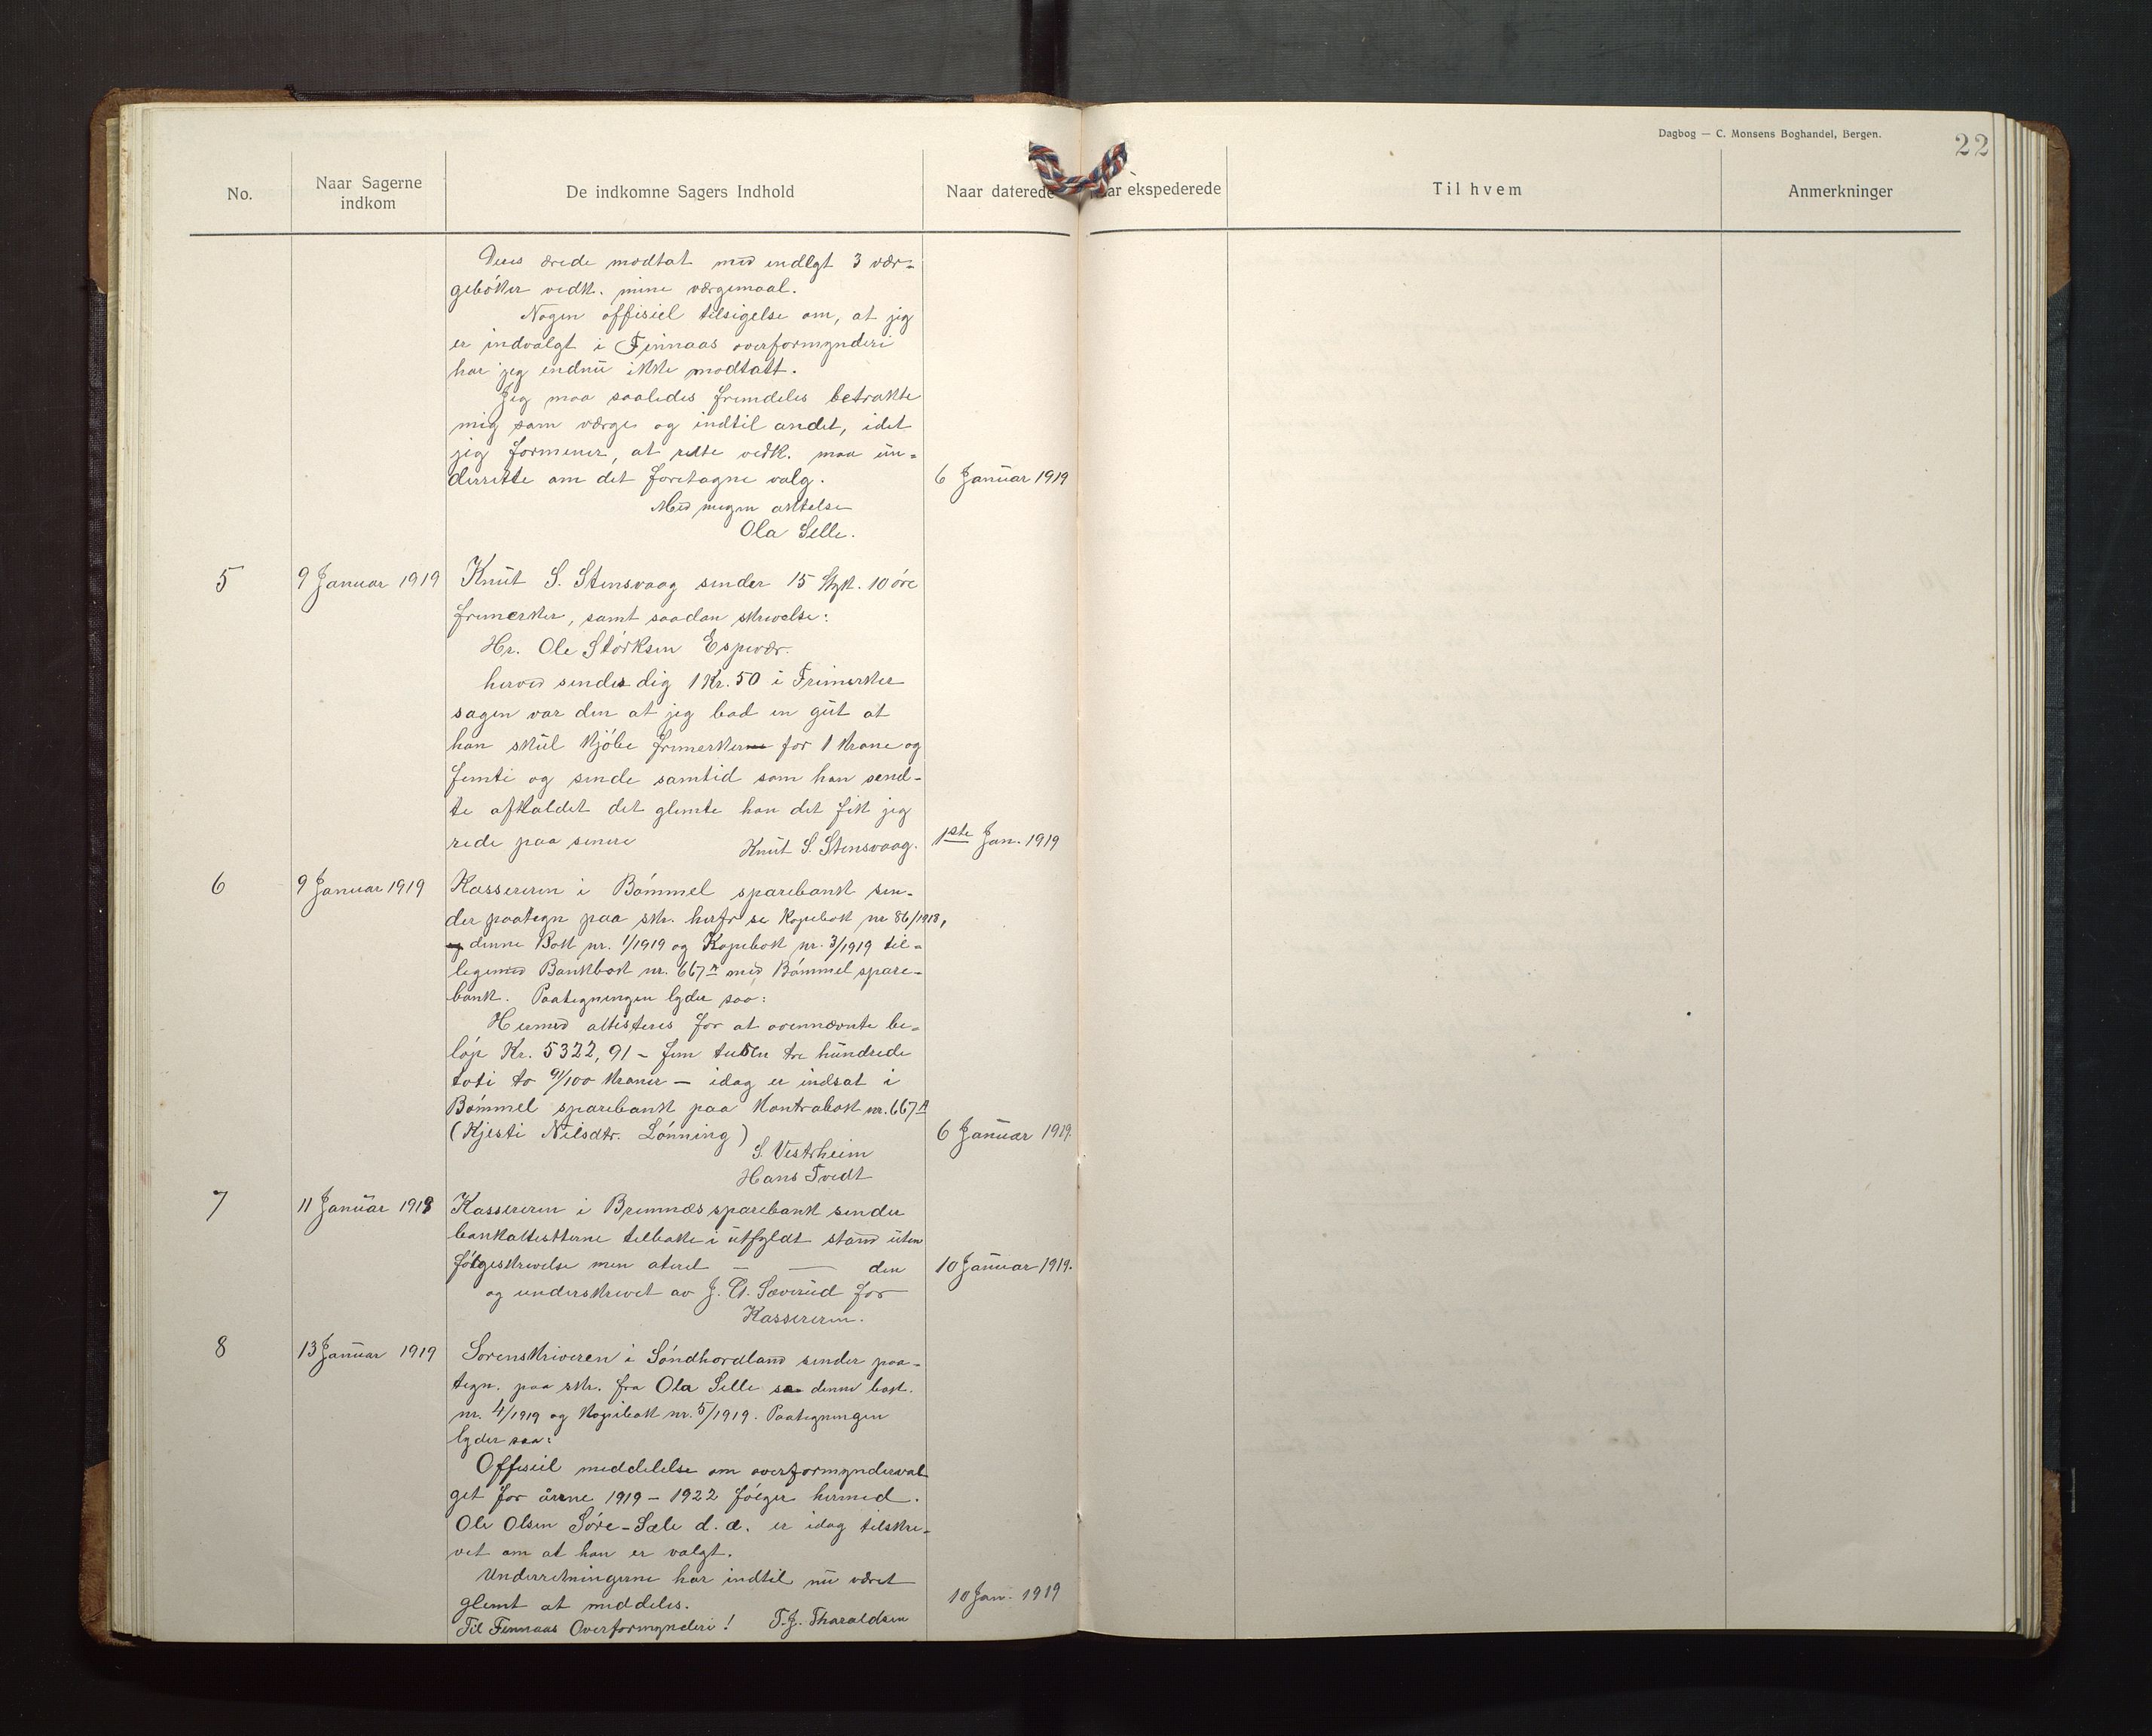 Dagbog — C. Monsens Boghandel, Bergen.
22
No.
Naar Sagerne indkom
De indkomne Sagers Indhold
Naar daterede
Naar ekspederede
Til hvem
Anmerkninger
Deres ærede modtat med indlgt 3 vær-
gebøker vedk. mine værgemaal.
Nogen offisiel tilsigelse om, at jeg
er indvalgt i Finnaas overformynderi
har jeg endnu ikke modtatt.
Jeg maa saaledes fremdeles betrakte
mig som værge og indtil andet, idet
jeg formener, at rette vedk. maa un-
derrette om det foretagne valg.
6 Januar 1919
Med megen aktelse
Ola Selle.
5
9 Januar 1919
Knut S. Stensvaag sender 15 Styk. 10 øre
frimerker, samt saadan skrivelse:
Hr. Ole Størksen Espevær.
herved sendes dig 1 Kr. 50 i Frimerker
sagen var den at jeg bad en gut at
han skul kjøbe frimerker for 1 Krone og
femti og sende samtid som han send-
te afkaldet det glemte han det fik jeg
rede paa senere
Knut S. Stensvaag.
1ste Jan. 1919
6
9 Januar 1919
Kassereren i Bømmel sparebank sen-
der paategn paa skr. herfr se Kopibok nr 86/1918,
og denne Bok nr. 1/1919 og Kopibok nr. 3/1919 til-
legemed Bankbok nr. 667 A med Bømmel spare-
bank. Paategningen lyder saa:
Hermed attesteres for at ovennævnte be-
løp Kr. 5322,91 – fem tusen tre hundrede
toti to 91/100 Kroner – idag er indsat i
Bømmel sparebank paa Kontrabok nr. 667 A
(Kjesti Nilsdtr. Lønning)
6 Januar 1919.
S. Vestrheim
Hans Tvedt
7
11 Januar 1919
Kassereren i Bremnæs sparebank sender
bankattestterne tilbake i utfyldt stand uten
følgeskrivelse men ateret – — den
10 Januar 1919.
og underskrevet av J. A. Sæverud for
Kassereren.
8
13 Januar 1919
Sorenskriveren i Søndhordland sender paa-
tegn. paa skr. fra Ola Selle se denne bok.
nr. 4/1919 og Kopibok nr. 5/1919. Paategningen
lyder saa:
Offisiel meddelelse om overformynderval
get for årene 1919 – 1922 følger hermed.
Ole Olsen Søre-Sæle d. æ. er idag tilskre-
vet om at han er valgt.
Underretningerne har indtil nu været
glemt at meddeles.
10 Jan. 1919
Til Finnaas Overformynderi! T.J. Tharaldsen